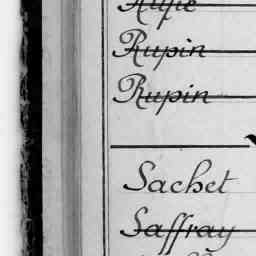 Rupin
Rupin
Sachet
Saffray